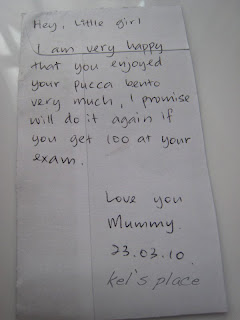 Hey, Little girl
I am very happy
that you enjoyed
your pucca bento
very much, I promise
will do it again if
you get 100 at your
exam.
Love you
Mummy.
23.03.10.
kel's place